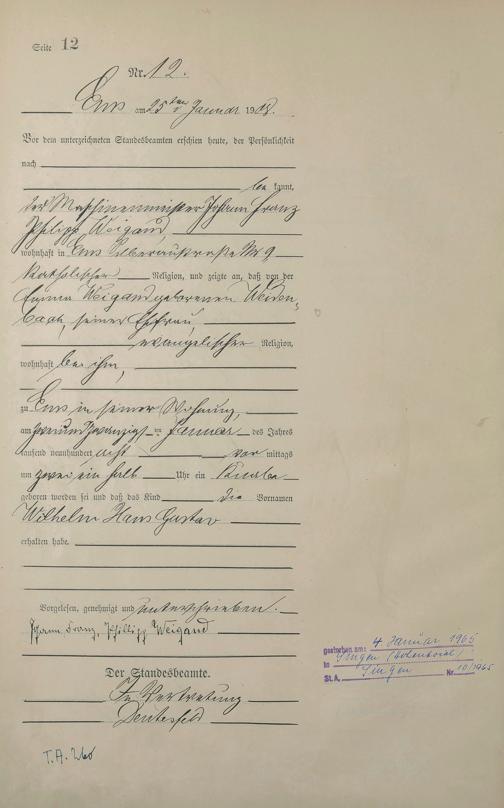 Seite 12
Nr. 12.
Ems am 25ten Januar 1908.
Vor dem unterzeichneten Standesbeamten erschien heute, der Persönlichkeit
nach
bekannt,
der Maschinenmeister Johann Franz
Philipp Weigand,
wohnhaft in Ems Silberaustraße Nr 9
katholischer Religion, und zeigte an, daß von der
Emma Weigand geborenen Weiden-
bach, seiner Ehefrau,
evangelischer Religion,
wohnhaft bei ihm,
zu Ems in seiner Wohnung,
am zweiundzwanzigsten Januar des Jahres
tausend neunhundert acht vor mittags
um zwei ein halb Uhr ein Knabe
geboren worden sei und daß das Kind die Vornamen
Wilhelm Hans Gustav
erhalten habe.
Vorgelesen, genehmigt und unterschrieben.
Johann Franz Philipp Weigand
Der Standesbeamte.
In Vertretung
gestorben am: 4. Januar 1965
in Singen (Hohentwiel)
St.A. Singen Nr. 10/1965
T.A. 260